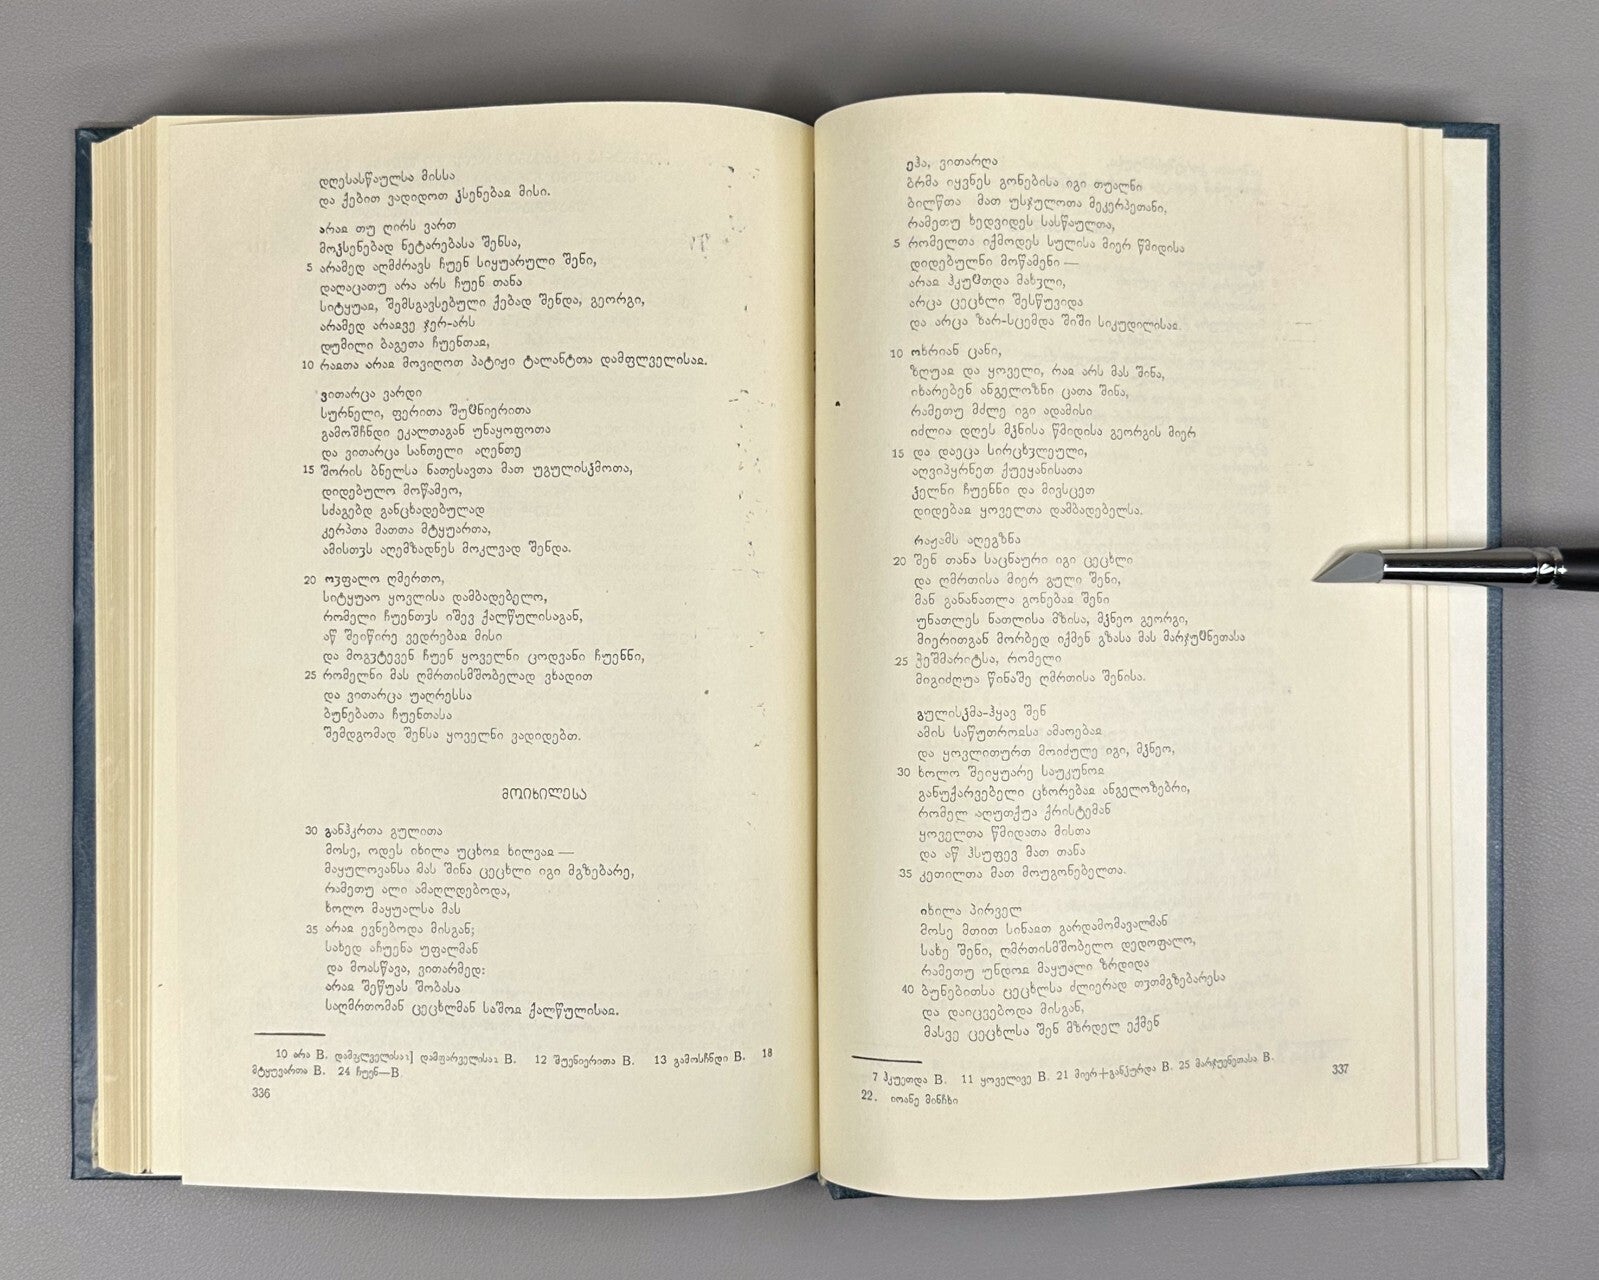 დღესასწაულსა მისსა
და ქებით ვადიდოთ ჴსენებაჲ მისი.
არაჲ თუ ღირს ვართ
მოჴსენებად ნეტარებასა შენსა,
5 არამედ აღმძრავს ჩუენ სიყუარული შენი,
დაღაცათუ არა არს ჩუენ თანა
სიტყუაჲ, შემსგავსებული ქებად შენდა, გეორგი,
არამედ არაჲვე ჯერ-არს
დუმილი ბაგეთა ჩუენთაჲ,
10 რაჲთა არაჲ მოვიღოთ პატიჟი ტალანტთა დამფლველისაჲ.
ვითარცა ვარდი
სურნელი, ფერითა შუჱნიერითა
გამოშჩნდი ეკალთაგან უნაყოფოთა
და ვითარცა სანთელი აღენთე
15 შორის ბნელსა ნათესავთა მათ უგულისჴმოთა,
დიდებულო მოწამეო,
სძაგებდ განცხადებულად
კერპთა მათთა მტყუართა,
ამისთჳს აღემზადნეს მოკლვად შენდა.
20 ოჳფალო ღმერთო,
სიტყუაო ყოვლისა დამბადებელო,
რომელი ჩუენთჳს იშევ ქალწულისაგან,
აწ შეიწირე ვედრებაჲ მისი
და მოგჳტევენ ჩუენ ყოველნი ცოდვანი ჩუენნი,
25 რომელნი მას ღმრთისმშობელად ვხადით
და ვითარცა უაღრესსა
ბუნებათა ჩუენთასა
შემდგომად შენსა ყოველნი ვადიდებთ.
მოიხილესა
30 განჰკრთა გულითა
მოსე, ოდეს იხილა უცხოჲ ხილვაჲ —
მაყულოვანსა მას შინა ცეცხლი იგი მგზებარე,
რამეთუ ალი ამაღლდებოდა,
ხოლო მაყუალსა მას
35 არაჲ ევნებოდა მისგან;
სახედ აჩუენა უფალმან
და მოასწავა, ვითარმედ:
არაჲ შეწუას შობასა
საღმრთომან ცეცხლმან საშოჲ ქალწულისაჲ.
10 არა B. დამფლველისაჲ] დამფარველისაჲ B. 12 შუენიერითა B. 13 გამოსჩნდი B. 18
მტყუვართა B. 24 ჩუენ—B.
336
ეჰა, ვითარღა
ბრმა იყვნეს გონებისა იგი თუალნი
ბილწთა მათ უსჯულოთა მეკერპეთანი,
რამეთუ ხედვიდეს სასწაულთა,
5 რომელთა იქმოდეს სულისა მიერ წმიდისა
დიდებულნი მოწამენი —
არაჲ ჰკუჱთდა მახჳლი,
არცა ცეცხლი შესწუვიდა
და არცა ზარ-სცემდა შიში სიკუდილისაჲ.
10 ოხრიან ცანი,
ზღუაჲ და ყოველი, რაჲ არს მას შინა,
იხარებენ ანგელოზნი ცათა შინა,
რამეთუ მძლე იგი ადამისი
იძლია დღეს მჴნისა წმიდისა გეორგის მიერ
15 და დაეცა სირცხჳლეული,
აღვიპყრნეთ ქუეყანისათა
ჴელნი ჩუენნი და მივსცეთ
დიდებაჲ ყოველთა დამბადებელსა.
რაჟამს აღეგზნა
20 შენ თანა საცნაური იგი ცეცხლი
და ღმრთისა მიერ გული შენი,
მან განანათლა გონებაჲ შენი
უნათლეს ნათლისა მზისა, მჴნეო გეორგი,
მიერითგან მორბედ იქმენ გზასა მას მარჯუჱნეთასა
25 ჭეშმარიტსა, რომელი
მიგიძღუა წინაშე ღმრთისა შენისა.
გულისჴმა-ჰყავ შენ
ამის საწუთროჲსა ამაოებაჲ
და ყოვლითურთ მოიძულე იგი, მჴნეო,
30 ხოლო შეიყუარე საუკუნოჲ
განუქარვებელი ცხორებაჲ ანგელოზებრი,
რომელ აღუთქუა ქრისტემან
ყოველთა წმიდათა მისთა
და აწ ჰსუფევ მათ თანა
35 კეთილთა მათ მოუგონებელთა.
იხილა პირველ
მოსე მთით სინაჲთ გარდამომავალმან
სახე შენი, ღმრთისმშობელო დედოფალო,
რამეთუ უნდოჲ მაყუალი ზრდიდა
40 ბუნებითსა ცეცხლსა ძლიერად თჳთმგზებარესა
და დაიცვებოდა მისგან,
მასვე ცეცხლსა შენ მზრდელ ექმენ
7 ჰკუეთდა B. 11 ყოველივე B. 21 მიერ+განჴურდა B. 25 მარჯუენეთასა B.
22. იოანე მინჩხი
337